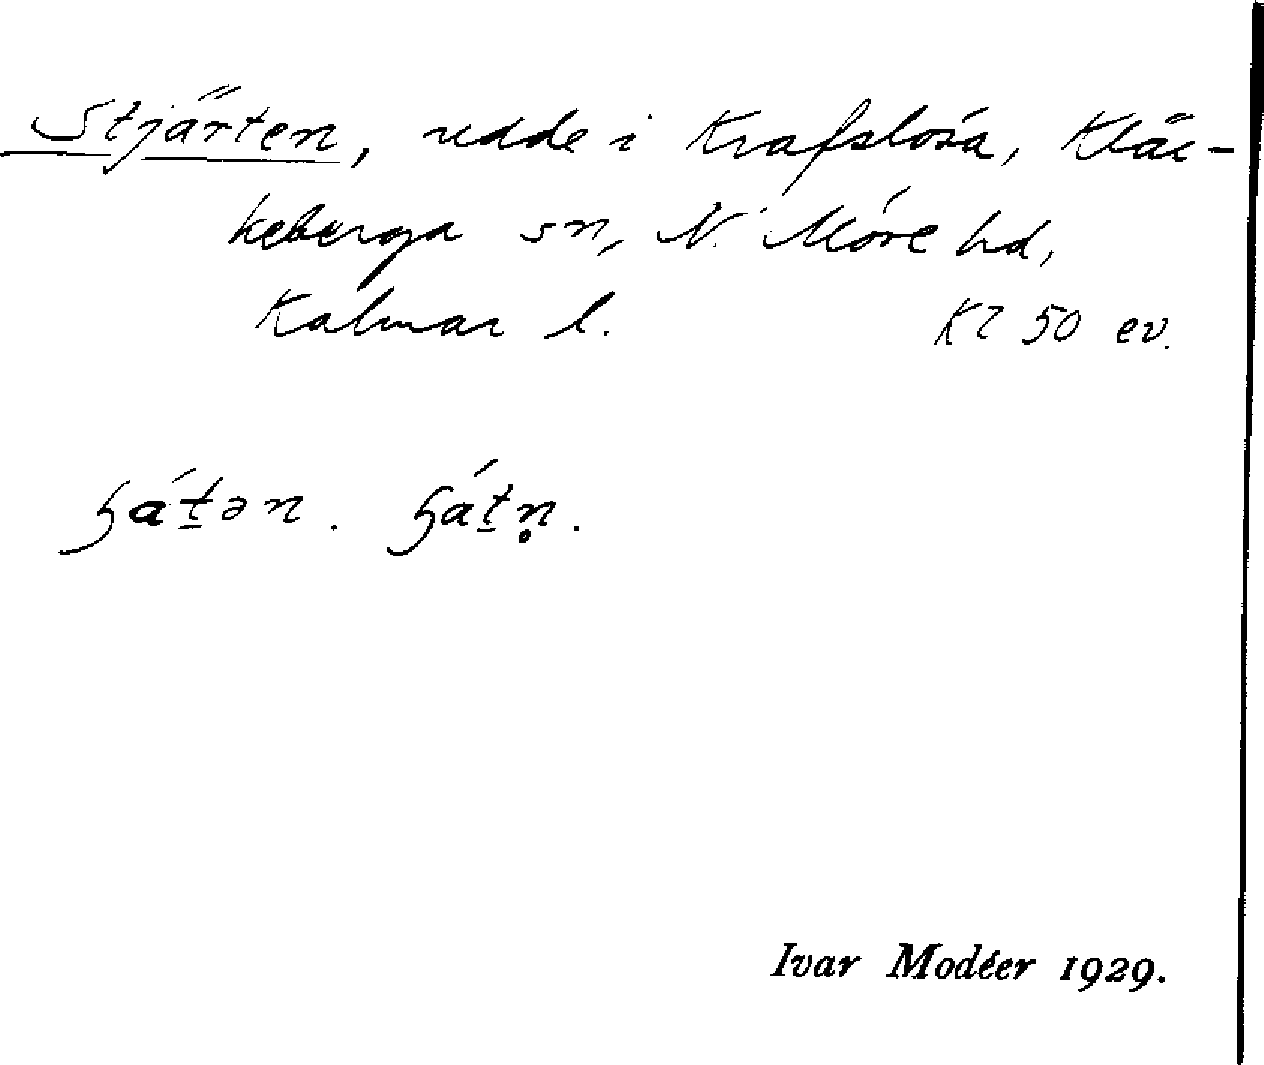 Stjärten, udde i Krafslösa, Kläc-
keberga sn, N. Möre hd,
Kalmar l. Kl 50 ev.
ʂát̲ən. ʂát̲n̥.
Ivar Modéer 1929.